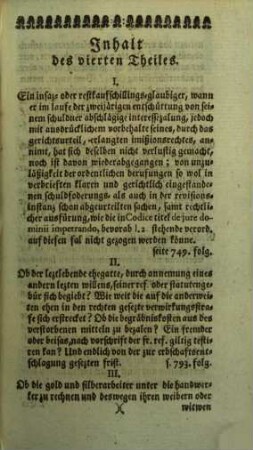 Inhalt
des vierten Theiles.
I.
Ein insaz- oder restkaufschillings-glaubiger, wann
er im laufe der zweijärigen entschüttung von sei-
nem schuldner abschlägige interessezalung, jedoch
mit ausdrücklichem vorbehalte seines, durch das
gerichtsurteil, erlangten imissionsrechtes, an-
nimt, hat sich desselben nicht verlustig gemacht,
noch ist davon wiederabgegangen; von unzu-
läßigkeit der ordentlichen berufungen so wol in
verbrieften klaren und gerichtlich eingestande-
nen schuldsoderungen, als auch in der revisions-
instanz schon abgeurteilten sachen, samt rechtli-
cher ausfürung, wie die in Codice titel de jure do-
minii impetrando, bevorab l. 2 stehende verord.
auf diesen fal nicht gezogen werden könne.
seite 749. folg.
II.
Ob der leztlebende ehegatte, durch annemung eines
andern lezten willens, seiner ref. oder statutenge-
bür sich begiebt? Wie weit die auf die anderwei-
ten ehen in den rechten gesezte verwirkungsstra-
fe sich erstrecket? Ob die begräbniskosten aus des
verstorbenen mitteln zu bezalen? Ein fremder
oder beisas, nach vorschrift der fr. ref. giltig testi-
ren kan? Und endlich von der zur erbschaftsent-
schlagung gesezten frist. s. 793. folg.
III.
Ob die gold und silberarbeiter unter die handwer-
ker zu rechnen und deswegen ihren weibern oder
X witwen